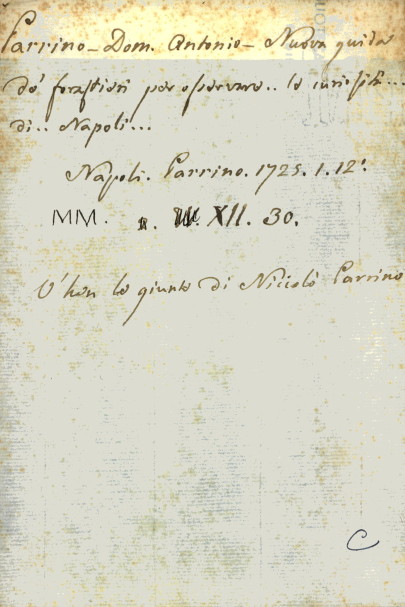 Parrino - Dom. Antonio - Nuova guida
de' forastieri per osservare.. le curiosità...
di.. Napoli...
Napoli. Parrino. 1725. 1. 12°.
MM. XII. 30.
V'han le giunte di Niccolò Parrino
C